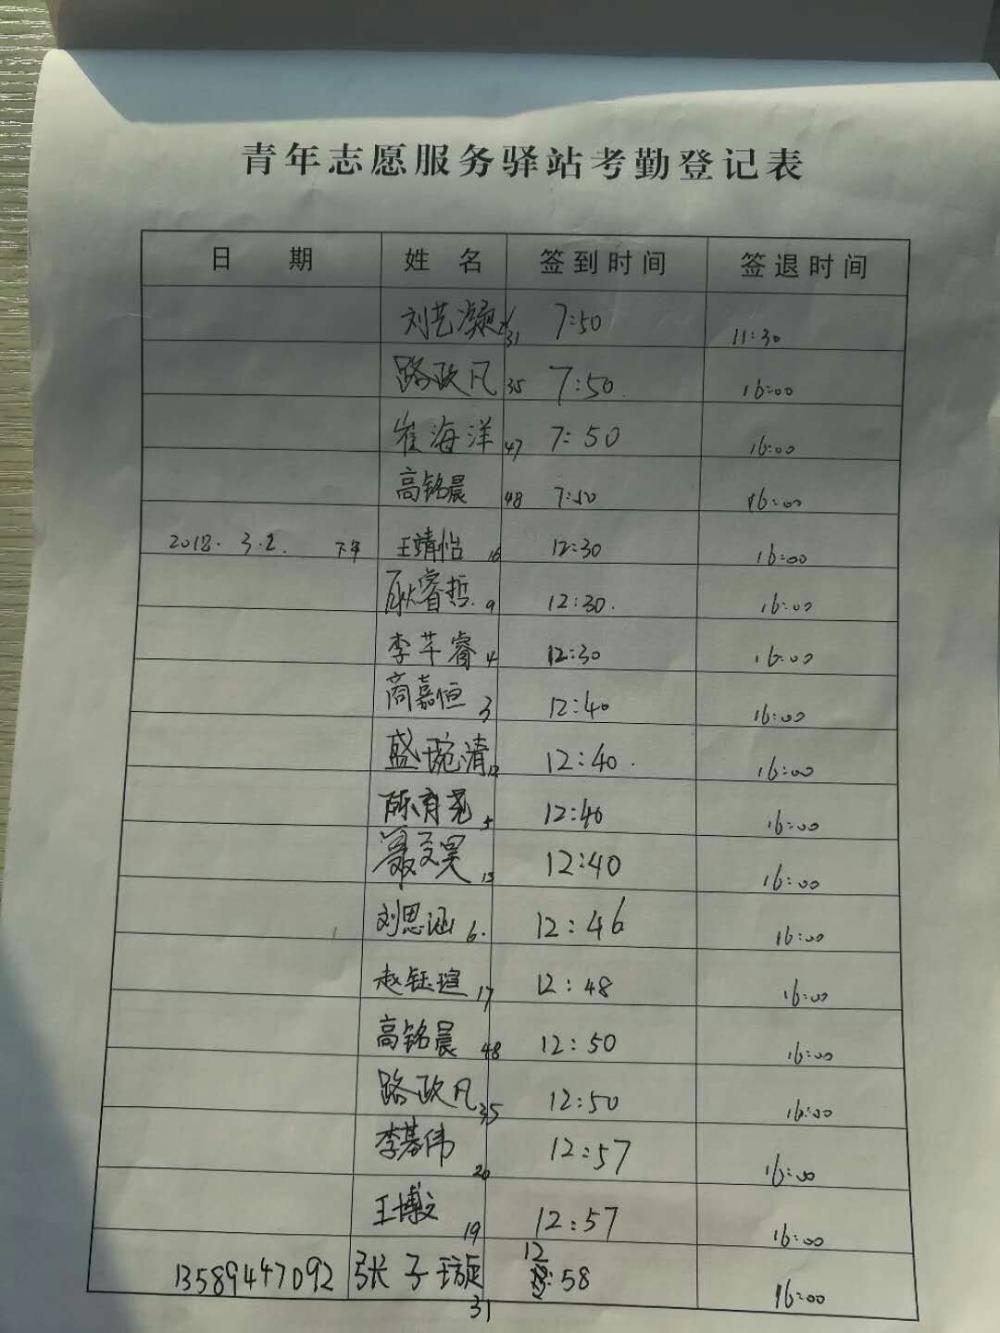 青年志愿服务驿站考勤登记表
日 期 姓 名 签到时间 签退时间
刘艺凝 31 7:50 11:30
路政凡 35 7:50 16:00
崔海洋 47 7:50 16:00
高铭晨 48 7:50 16:00
2018.3.2. 下午 王靖怡 16 12:30 16:00
耿睿哲 9 12:30 16:00
李芊睿 4 12:30 16:00
商嘉恒 3 12:40 16:00
盛琬清 12 12:40 16:00
陈育尧 5 12:40 16:00
聂文昊 13 12:40 16:00
刘思涵 6 12:46 16:00
赵钰瑄 17 12:48 16:00
高铭晨 48 12:50 16:00
路政凡 35 12:50 16:00
李 伟 20 12:57 16:00
王博文 19 12:57 16:00
13589447092 张子璇 31 12:58 16:00